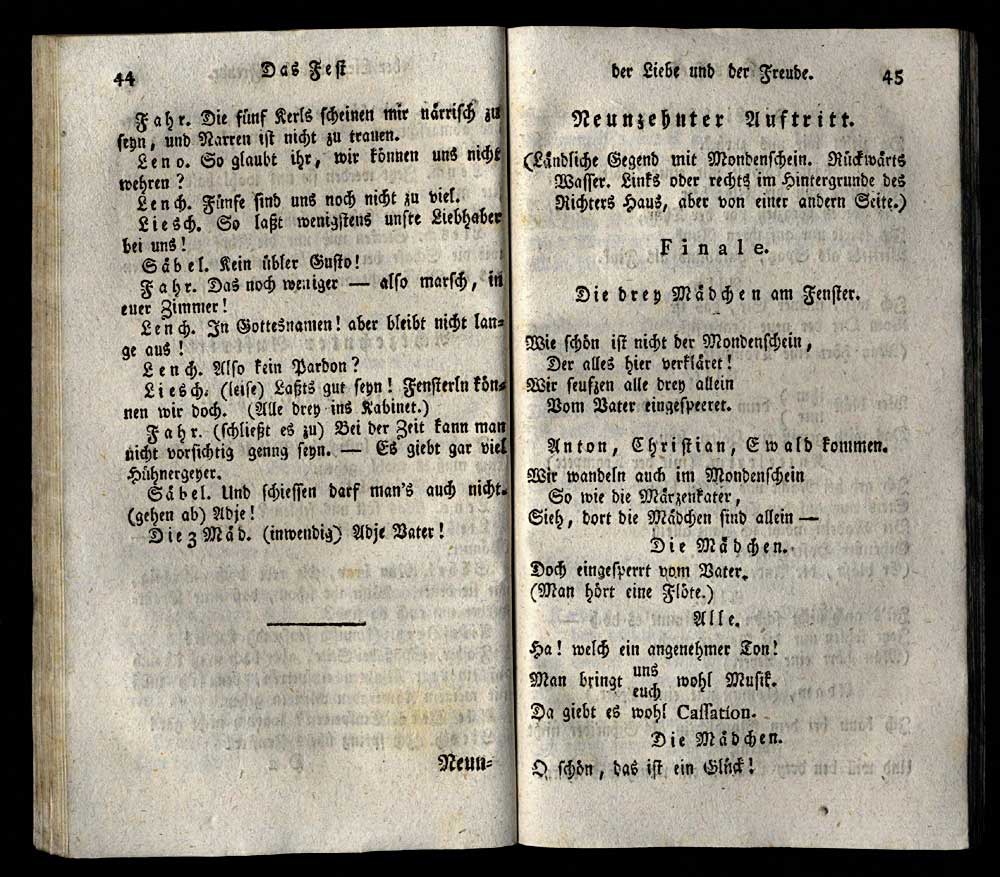 44 Das Fest
Fahr. Die fünf Kerls scheinen mir närrisch zu
seyn, und Narren ist nicht zu trauen.
Leno. So glaubt ihr, wir können uns nicht
wehren?
Lench. Fünfe sind uns noch nicht zu viel.
Liesch. So laßt wenigstens unsre Liebhaber
bei uns!
Säbel. Kein übler Gusto!
Fahr. Das noch weniger — also marsch, in
euer Zimmer!
Lench. In Gottesnamen! aber bleibt nicht lan=
ge aus!
Lench. Also kein Pardon?
Liesch. (leise) Laßts gut seyn! Fensterln kön=
nen wir doch. (Alle drey ins Kabinet.)
Fahr. (schließt es zu) Bei der Zeit kann man
nicht vorsichtig genug seyn. — Es giebt gar viel
Hühnergeyer.
Säbel. Und schiessen darf man's auch nicht.
(gehen ab) Adje!
Die 3 Mäd. (inwendig) Adje Vater!
Neun=
der Liebe und der Freude. 45
Neunzehnter Auftritt.
(Ländliche Gegend mit Mondenschein. Rückwärts
Wasser. Links oder rechts im Hintergrunde des
Richters Haus, aber von einer andern Seite.)
Finale.
Die drey Mädchen am Fenster.
Wie schön ist nicht der Mondenschein,
Der alles hier verkläret!
Wir seufzen alle drey allein
Vom Vater eingespeeret.
Anton, Christian, Ewald kommen.
Wir wandeln auch im Mondenschein
So wie die Märzenkater,
Sieh, dort die Mädchen sind allein —
Die Mädchen.
Doch eingesperrt vom Vater.
(Man hört eine Flöte.)
Alle.
Ha! welch ein angenehmer Ton!
Man bringt uns euch wohl Musik.
Da giebt es wohl Cassation.
Die Mädchen.
O schön, das ist ein Glück!